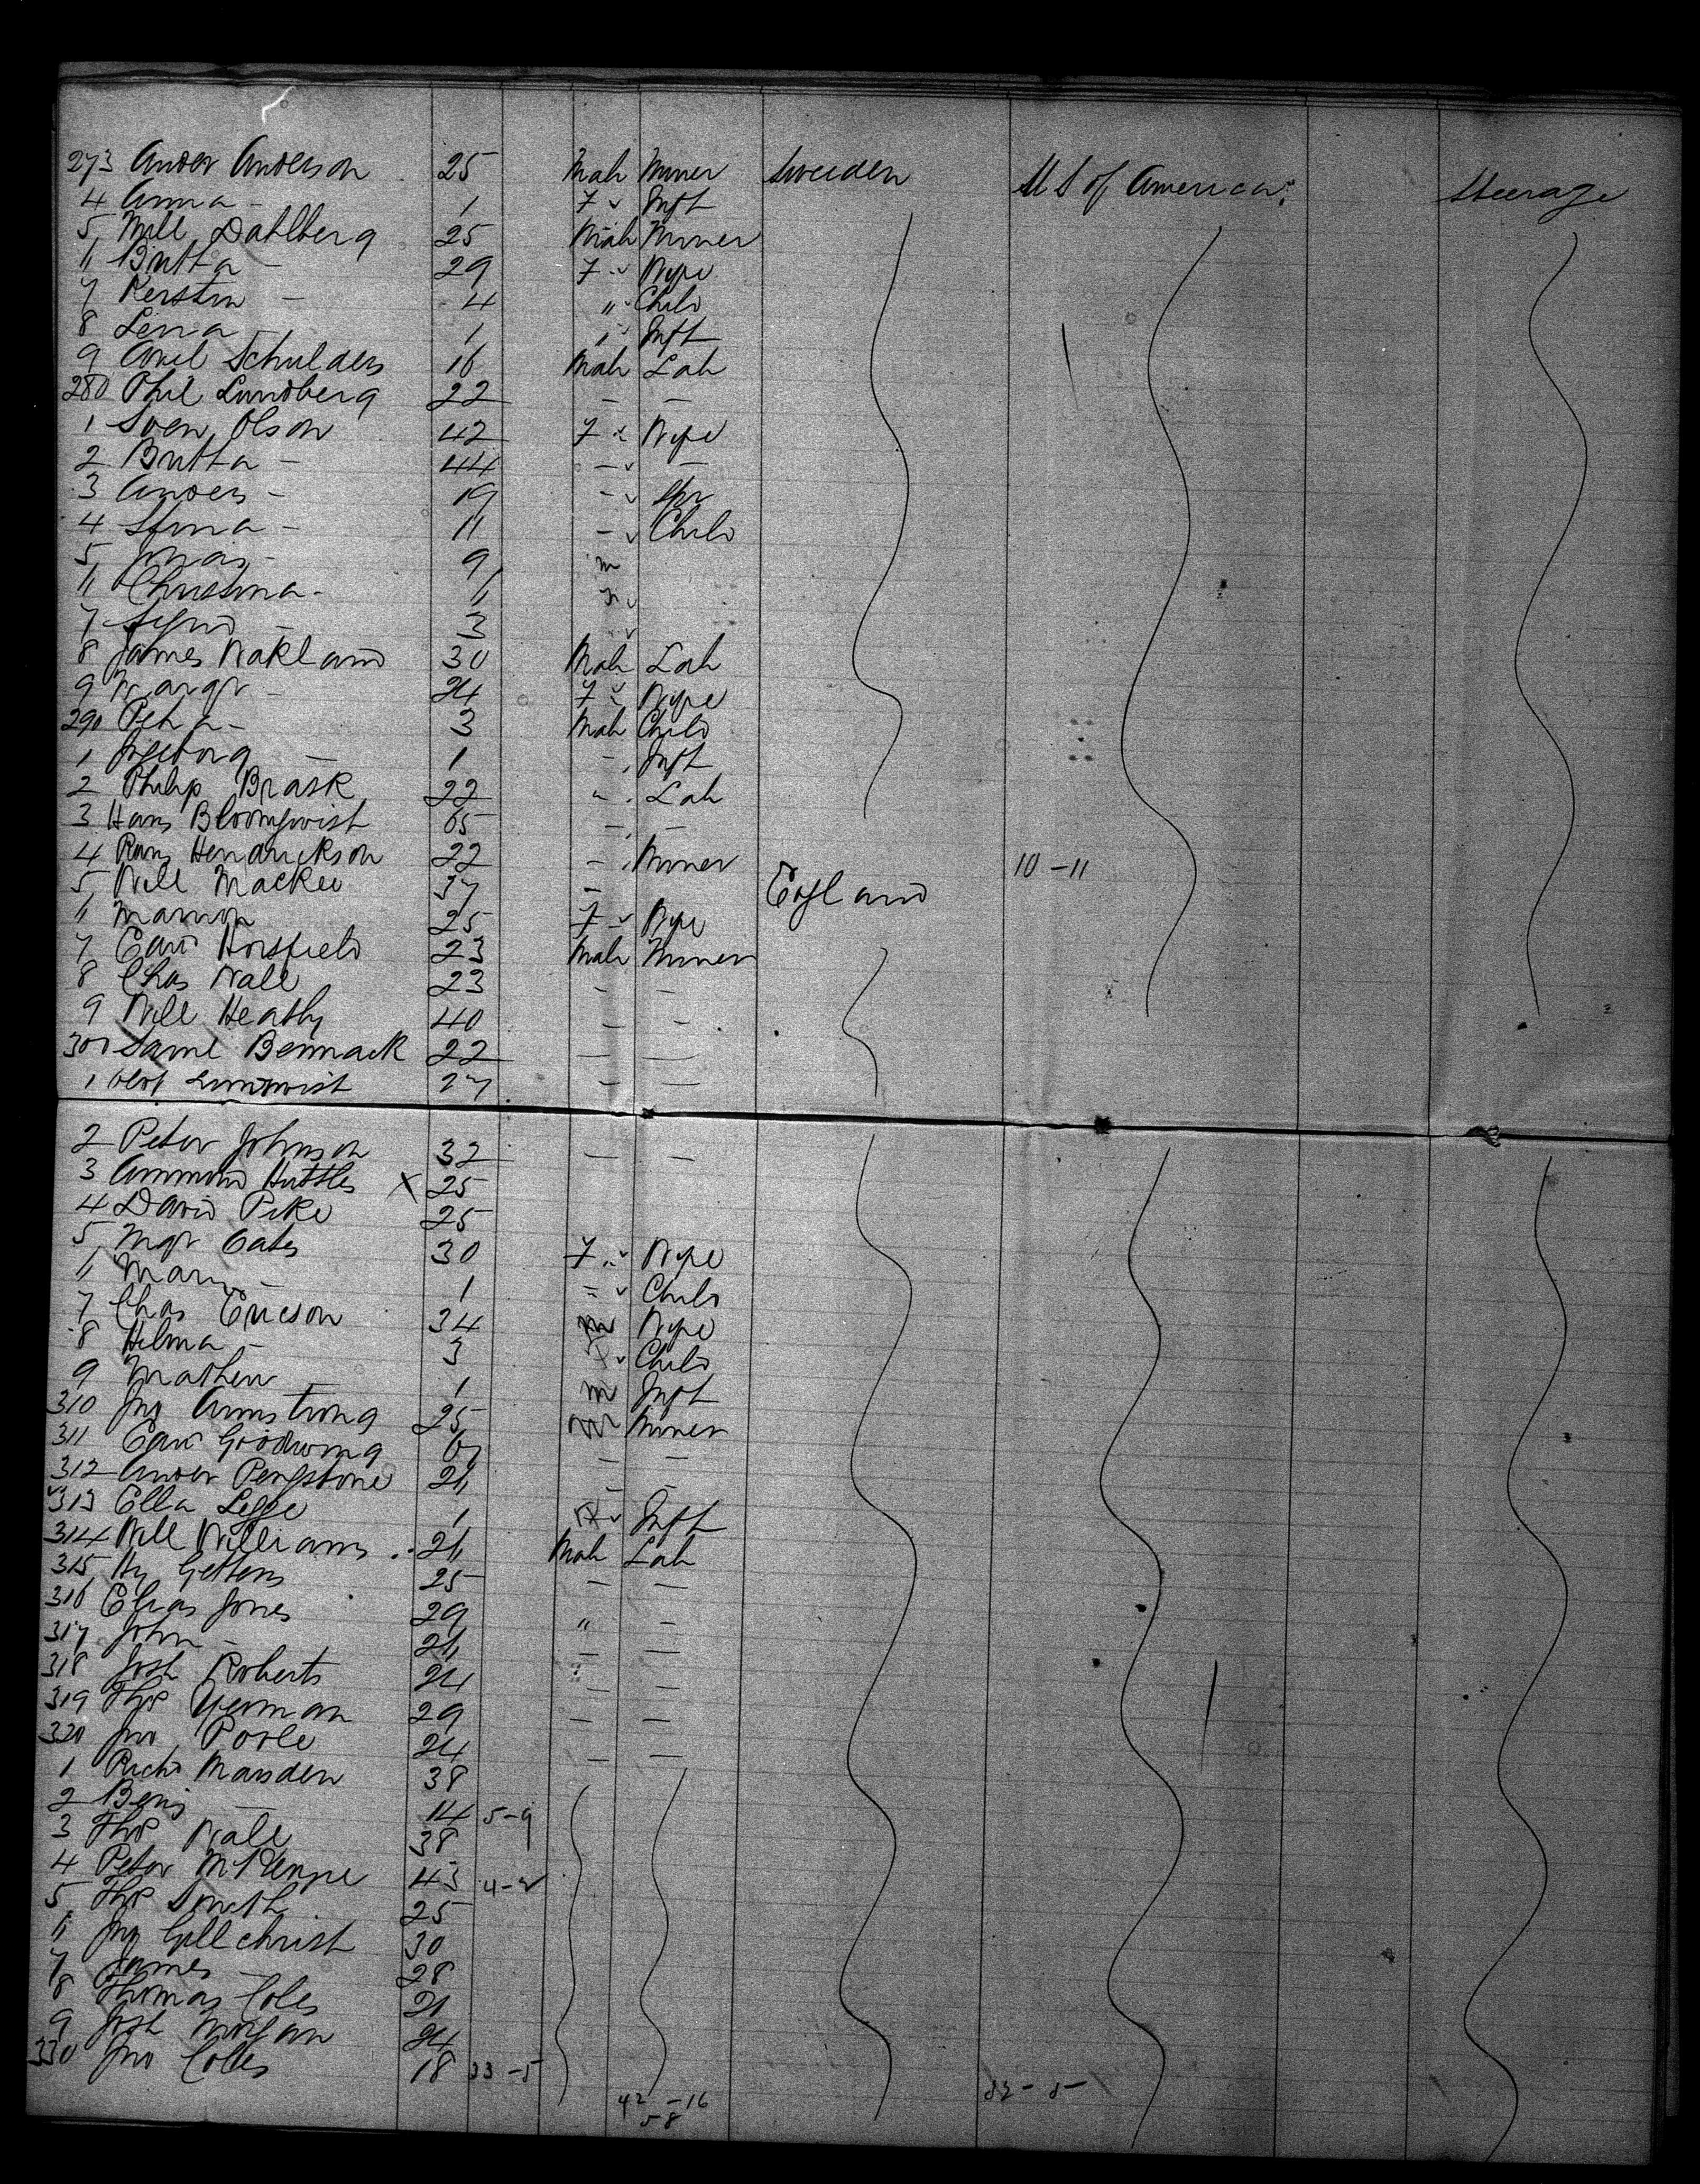 273 Ander Anderson 25 Male Miner Sweden U S of America Steerage
4 Anna - 1 F Inft
5 Will Dahlberg 25 Male Miner
6 Britta - 29 F Wife
7 Kerstin - 4 " Child
8 Lena 1 " Inft
9 Axel Schulders 16 Male Lab
280 Phil Lundberg 22 - -
1 Sven Olson 42 F Wife
2 Britta - 44 - -
3 Anders - 19 - Spr
4 Stina - 11 - Child
5 - 9 m
6 Christina - 6
7 - 3
8 James Wakland 30 Male Lab
9 Margt - 24 F Wife
290 - 3 Male Child
1 Ingeborg - 1 - Inft
2 Philip Brask 22 " Lab
3 Hans Bloomqwist 65 - -
4 Hendrickson 22 - Miner
5 Will Mackee 37 - England 10-11
6 Marion 25 F Wife
7 Edwd Horsfield 23 Male Miner
8 Chas Wall 23 - -
9 Will Heath 40 - -
300 Saml Bennack 22 - -
1 Olof Lundqwist 27 - -
2 Peter Johnson 32 - -
3 Ammond Huttles X 25
4 David Pike 25
5 Mgt Oates 30 F Wife
6 Mary - 1 - Child
7 Chas Ericson 34 m Wife
8 Hilma - 3 F Child
9 Mathew - 1 m Inft
310 Jno Armstrong 25 m Miner
311 Edwd - -
312 Ander 26 - -
313 Ella Legge 1 F Inft
314 Will Williams 26 Male Lab
315 Hy Gettens 25 - -
316 Elias Jones 29 " -
317 John - 26 - -
318 Josh Roberts 24 - -
319 Thos Yeoman 29 - -
320 Jno Poole 24 - -
1 Richd Marsden 38
2 Benj - 14 5-9
3 Thos Wall 38
4 Peter McKenzie 43 4-2
5 Thos Smith 25
6 Jno Gillchrist 30
7 James - 28
8 Thomas Coles 21
9 Josh Morgan 24
330 Jno Coles 18 33-5
42-16
58